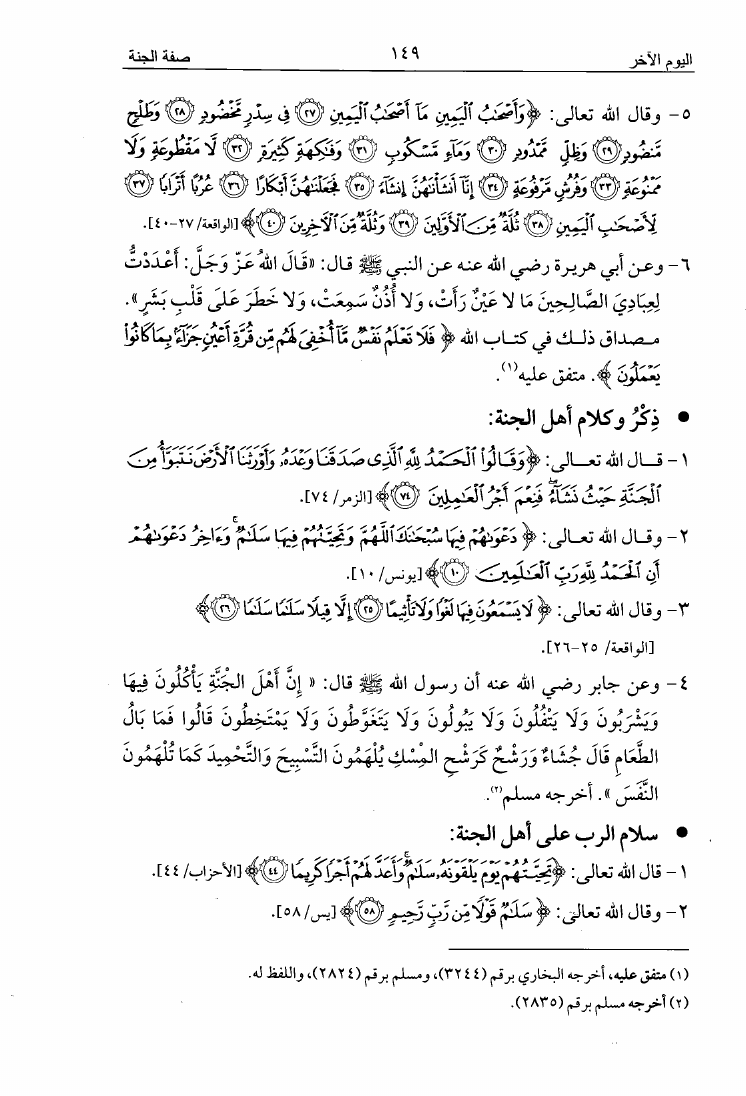 اليوم الآخر ١٤٩ صفة الجنة
٥- وقال الله تعالى: ﴿وَأَصْحَابُ الْيَمِينِ مَا أَصْحَابُ الْيَمِينِ ٢٧ فِي سِدْرٍ مَّخْضُودٍ ٢٨ وَطَلْحٍ
مَّنضُودٍ ٢٩ وَظِلٍّ مَّمْدُودٍ ٣٠ وَمَاءٍ مَّسْكُوبٍ ٣١ وَفَاكِهَةٍ كَثِيرَةٍ ٣٢ لَّا مَقْطُوعَةٍ وَلَا
مَمْنُوعَةٍ ٣٣ وَفُرُشٍ مَّرْفُوعَةٍ ٣٤ إِنَّا أَنشَأْنَاهُنَّ إِنشَاءً ٣٥ فَجَعَلْنَاهُنَّ أَبْكَارًا ٣٦ عُرُبًا أَتْرَابًا ٣٧
لِّأَصْحَابِ الْيَمِينِ ٣٨ ثُلَّةٌ مِّنَ الْأَوَّلِينَ ٣٩ وَثُلَّةٌ مِّنَ الْآخِرِينَ ٤٠﴾ [الواقعة/ ٢٧-٤٠].
٦- وعن أبي هريرة رضي الله عنه عن النبي ﷺ قال: «قَالَ اللهُ عَزَّ وَجَلَّ: أَعْدَدْتُ
لِعِبَادِيَ الصَّالِحِينَ مَا لا عَيْنٌ رَأَتْ، وَلا أُذُنٌ سَمِعَتْ، وَلا خَطَرَ عَلَى قَلْبِ بَشَرٍ».
مصداق ذلك في كتاب الله ﴿ فَلَا تَعْلَمُ نَفْسٌ مَّا أُخْفِيَ لَهُم مِّن قُرَّةِ أَعْيُنٍ جَزَاءً بِمَا كَانُوا
يَعْمَلُونَ ﴾. متفق عليه(١).
● ذِكْرُ وكلام أهل الجنة:
١- قال الله تعالى: ﴿وَقَالُوا الْحَمْدُ لِلَّهِ الَّذِي صَدَقَنَا وَعْدَهُ وَأَوْرَثَنَا الْأَرْضَ نَتَبَوَّأُ مِنَ
الْجَنَّةِ حَيْثُ نَشَاءُ فَنِعْمَ أَجْرُ الْعَامِلِينَ ٧٤﴾ [الزمر/ ٧٤].
٢- وقال الله تعالى: ﴿ دَعْوَاهُمْ فِيهَا سُبْحَانَكَ اللَّهُمَّ وَتَحِيَّتُهُمْ فِيهَا سَلَامٌ وَءَاخِرُ دَعْوَاهُمْ
أَنِ الْحَمْدُ لِلَّهِ رَبِّ الْعَالَمِينَ ١٠﴾ [يونس/ ١٠].
٣- وقال الله تعالى: ﴿ لَا يَسْمَعُونَ فِيهَا لَغْوًا وَلَا تَأْثِيمًا ٢٥ إِلَّا قِيلًا سَلَامًا سَلَامًا ٢٦﴾
[الواقعة/ ٢٥-٢٦].
٤- وعن جابر رضي الله عنه أن رسول الله ﷺ قال: « إِنَّ أَهْلَ الجَنَّةِ يَأْكُلُونَ فِيهَا
وَيَشْرَبُونَ وَلَا يَتْفُلُونَ وَلَا يَبُولُونَ وَلَا يَتَغَوَّطُونَ وَلَا يَمْتَخِطُونَ قَالُوا فَمَا بَالُ
الطَّعَامِ قَالَ جُشَاءٌ وَرَشْحٌ كَرَشْحِ المِسْكِ يُلْهَمُونَ التَّسْبِيحَ وَالتَّحْمِيدَ كَمَا تُلْهَمُونَ
النَّفَسَ ». أخرجه مسلم(٢).
● سلام الرب على أهل الجنة:
١- قال الله تعالى: ﴿تَحِيَّتُهُمْ يَوْمَ يَلْقَوْنَهُ سَلَامٌ وَأَعَدَّ لَهُمْ أَجْرًا كَرِيمًا ٤٤﴾ [الأحزاب/ ٤٤].
٢- وقال الله تعالى: ﴿ سَلَامٌ قَوْلًا مِّن رَّبٍّ رَّحِيمٍ ٥٨﴾ [يس/ ٥٨].
(١) متفق عليه، أخرجه البخاري برقم (٣٢٤٤)، ومسلم برقم (٢٨٢٤)، واللفظ له.
(٢) أخرجه مسلم برقم (٢٨٣٥).